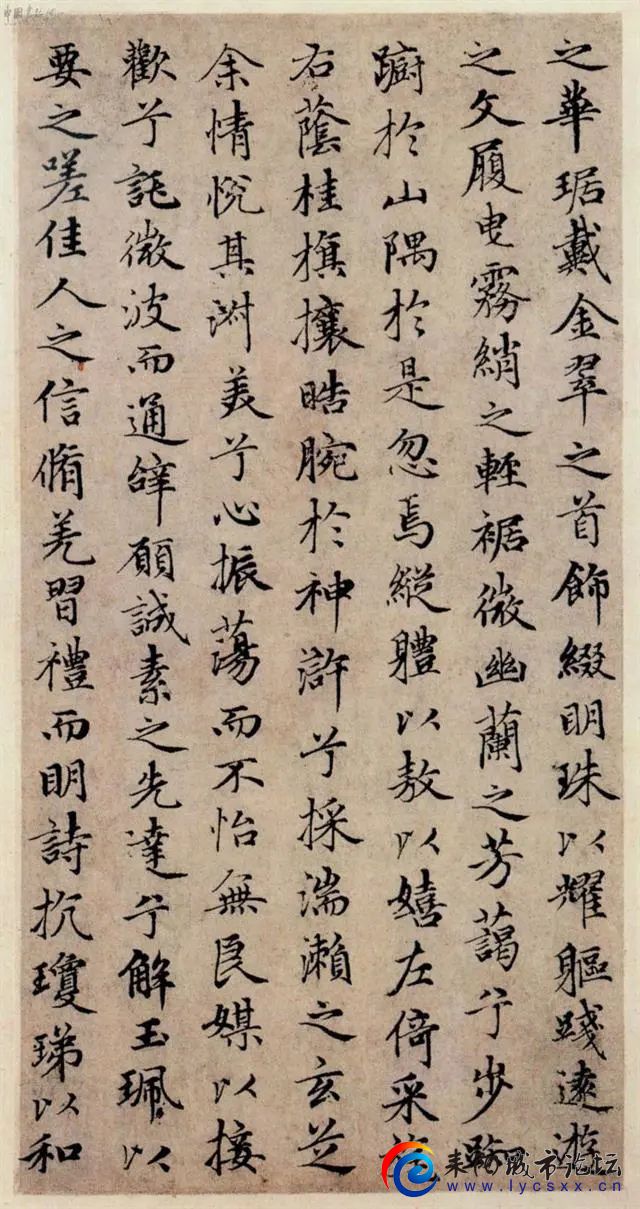 之華琚戴金翠之首飾綴明珠以耀軀踐遠遊
之文履曳霧綃之輕裾微幽蘭之芳藹兮步踟
蹰於山隅於是忽焉縱軆以敖以嬉左倚采旄
右蔭桂旗攘皓腕於神滸兮採湍瀨之玄芝
余情悅其淑美兮心振蕩而不怡無良媒以接
歡兮託微波而通辭願誠素之先達兮解玉珮以
要之嗟佳人之信脩羌習禮而明詩抗瓊珶以和
耒阳城市论坛
www.lycsxx.cn